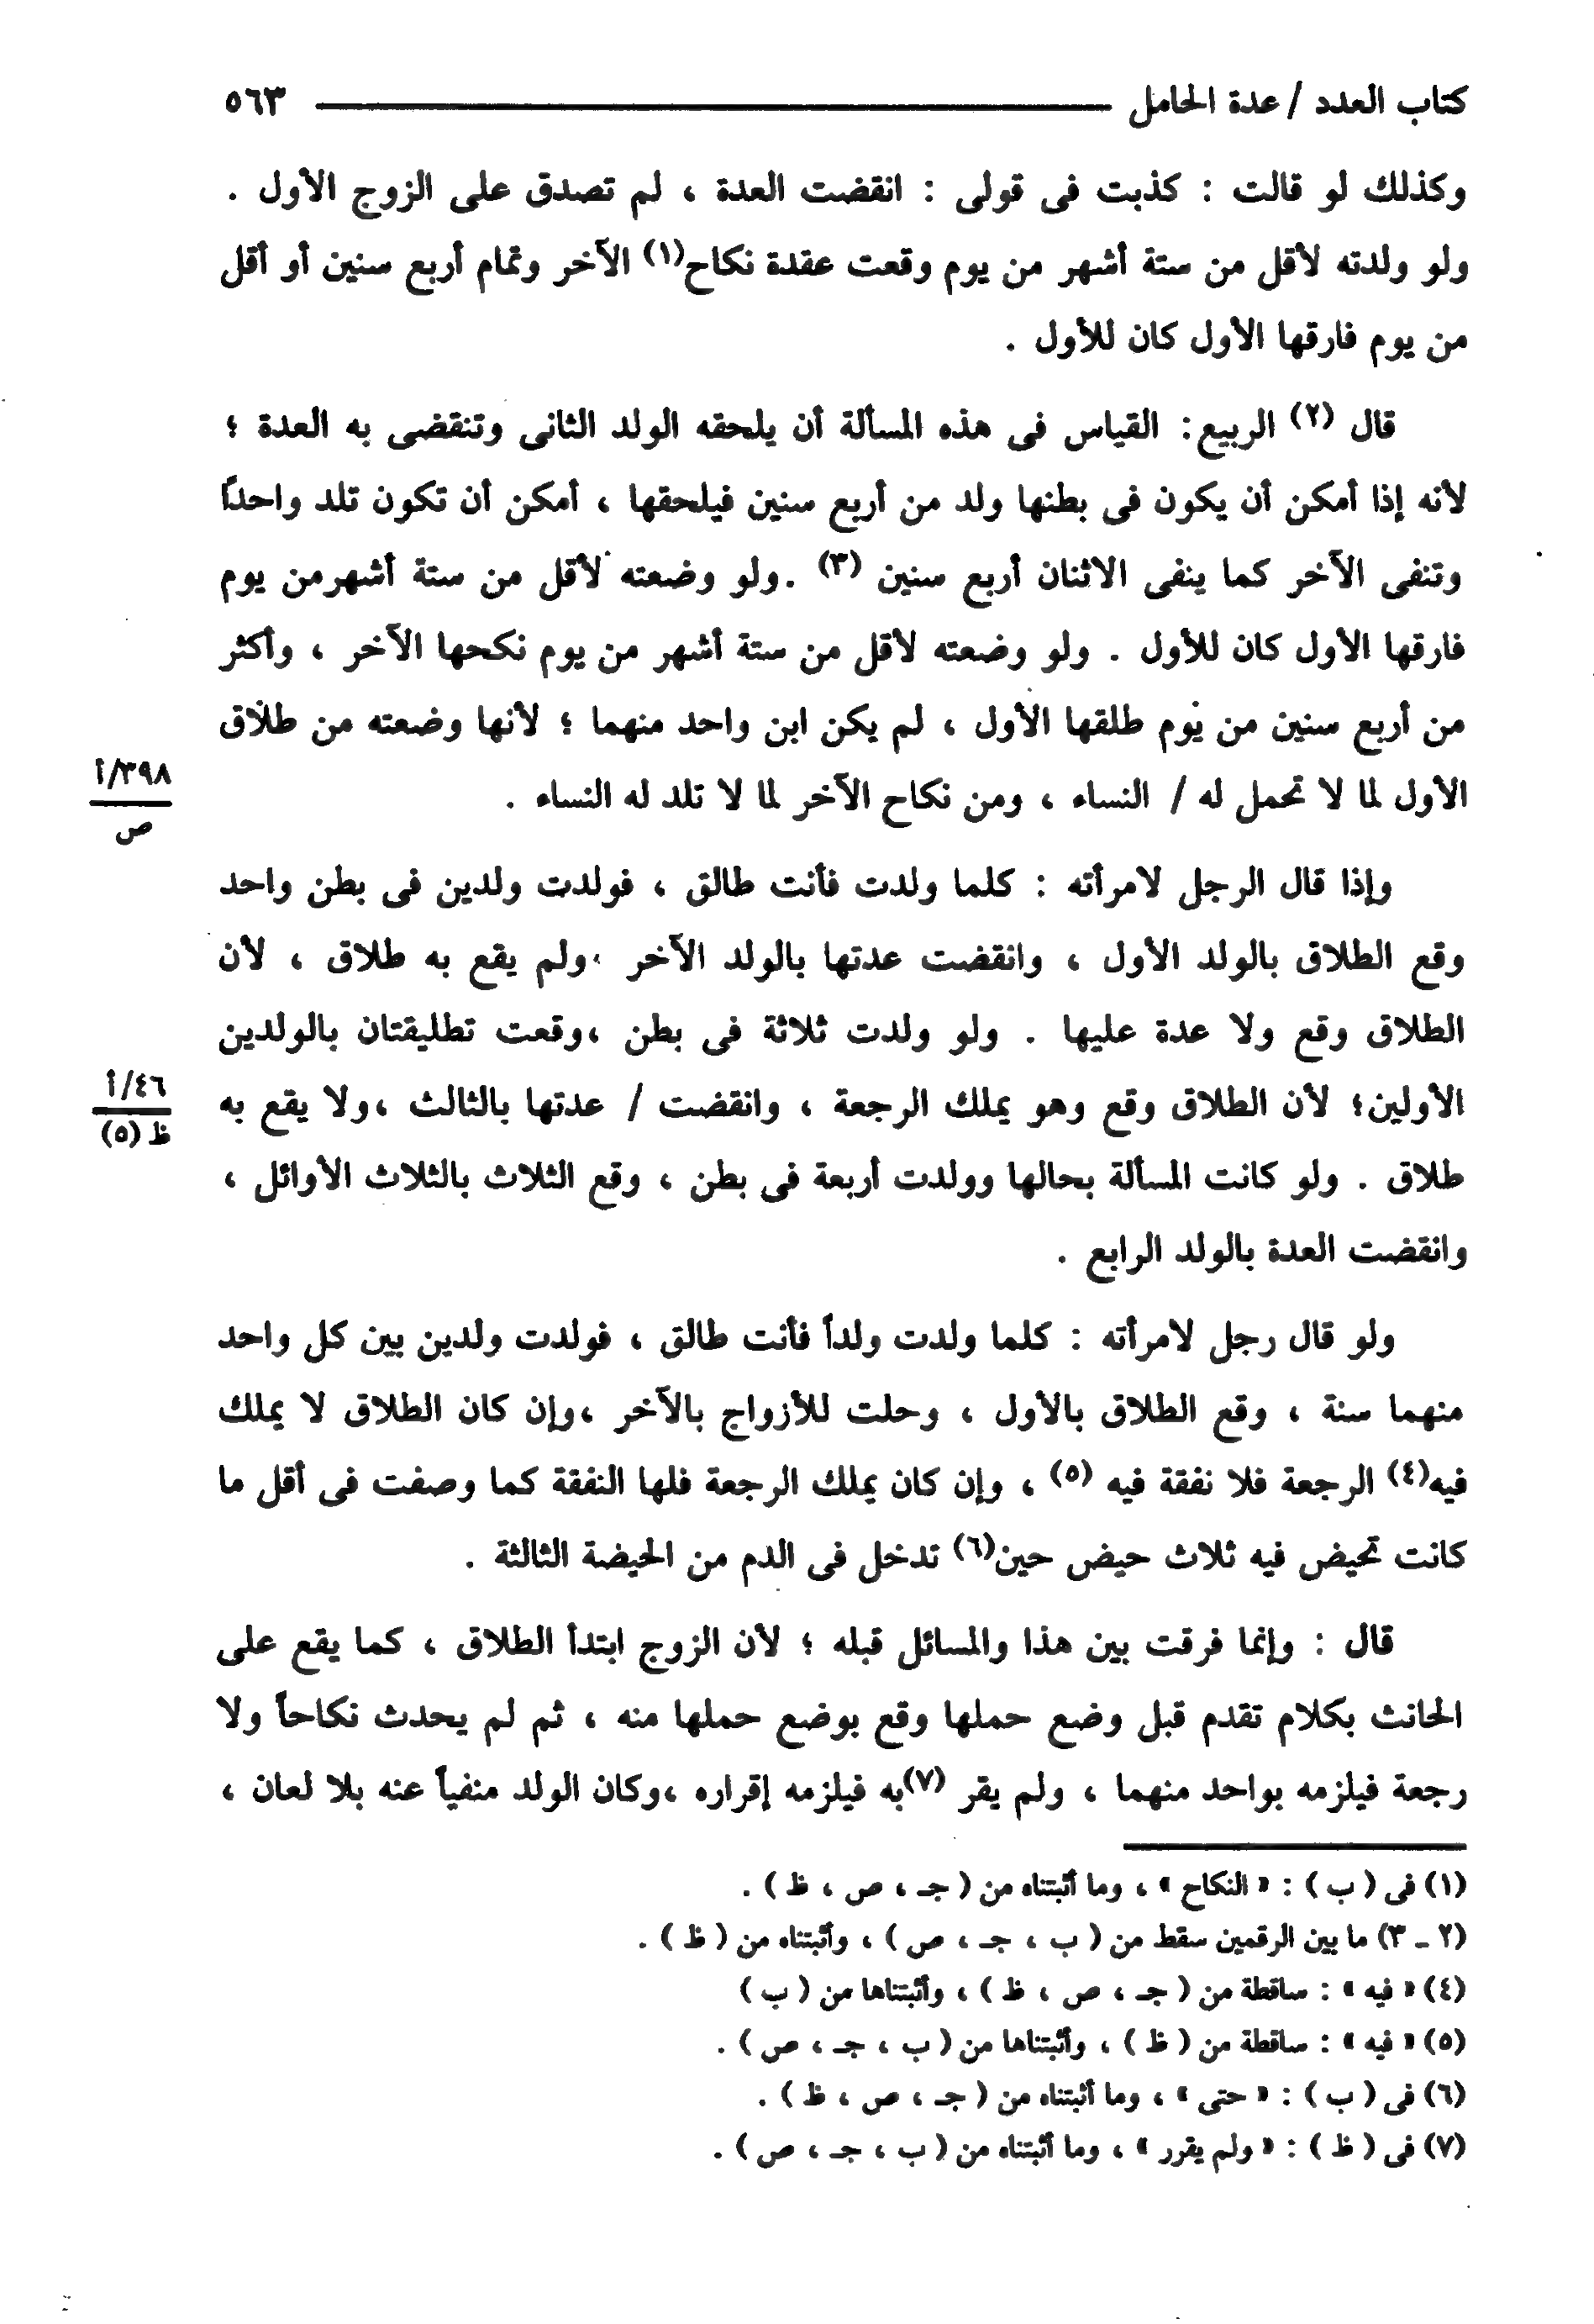 كتاب العدد / عدة الحامل ٥٦٣
وكذلك لو قالت : كذبت فى قولى : انقضت العدة ، لم تصدق على الزوج الأول .
ولو ولدته لأقل من ستة أشهر من يوم وقعت عقدة نكاح(١) الآخر وتمام أربع سنين أو أقل
من يوم فارقها الأول كان للأول .
قال (٢) الربيع: القياس فى هذه المسألة أن يلحقه الولد الثانى وتنقضى به العدة ؛
لأنه إذا أمكن أن يكون فى بطنها ولد من أربع سنين فيلحقها ، أمكن أن تكون تلد واحدًا
وتنفى الآخر كما ينفى الاثنان أربع سنين (٣) .ولو وضعته لأقل من ستة أشهرمن يوم
فارقها الأول كان للأول . ولو وضعته لأقل من ستة أشهر من يوم نكحها الآخر ، وأكثر
من أربع سنين من يوم طلقها الأول ، لم يكن ابن واحد منهما ؛ لأنها وضعته من طلاق
الأول لما لا تحمل له / النساء ، ومن نكاح الآخر لما لا تلد له النساء .
٣٩٨/أ
ص
وإذا قال الرجل لامرأته : كلما ولدت فأنت طالق ، فولدت ولدين فى بطن واحد
وقع الطلاق بالولد الأول ، وانقضت عدتها بالولد الآخر ،ولم يقع به طلاق ، لأن
الطلاق وقع ولا عدة عليها . ولو ولدت ثلاثة فى بطن ،وقعت تطليقتان بالولدين
الأولين؛ لأن الطلاق وقع وهو يملك الرجعة ، وانقضت / عدتها بالثالث ،ولا يقع به
٤٦/أ
ظ (٥)
طلاق . ولو كانت المسألة بحالها وولدت أربعة فى بطن ، وقع الثلاث بالثلاث الأوائل ،
وانقضت العدة بالولد الرابع .
ولو قال رجل لامرأته : كلما ولدت ولداً فأنت طالق ، فولدت ولدين بين كل واحد
منهما سنة ، وقع الطلاق بالأول ، وحلت للأزواج بالآخر ،وإن كان الطلاق لا يملك
فيه(٤) الرجعة فلا نفقة فيه (٥) ، وإن كان يملك الرجعة فلها النفقة كما وصفت فى أقل ما
كانت تحيض فيه ثلاث حيض حين(٦) تدخل فى الدم من الحيضة الثالثة .
قال : وإنما فرقت بين هذا والمسائل قبله ؛ لأن الزوج ابتدأ الطلاق ، كما يقع على
الحانث بكلام تقدم قبل وضع حملها وقع بوضع حملها منه ، ثم لم يحدث نكاحاً ولا
رجعة فيلزمه بواحد منهما ، ولم يقر (٧)به فيلزمه إقراره ،وكان الولد منفياً عنه بلا لعان ،
(١) فى ( ب ) : « النكاح » ، وما أثبتناه من ( جـ ، ص ، ظ ) .
(٢ ـ ٣) ما بين الرقمين سقط من ( ب ، جـ ، ص ) ، وأثبتناه من ( ظ ) .
(٤) « فيه » : ساقطة من ( جـ ، ص ، ظ ) ، وأثبتناها من ( ب )
(٥) « فيه » : ساقطة من ( ظ ) ، وأثبتناها من ( ب ، جـ ، ص ) .
(٦) فى ( ب ) : « حتى » ، وما أثبتناه من ( جـ ، ص ، ظ ) .
(٧) فى ( ظ ) : « ولم يقرر » ، وما أثبتناه من ( ب ، جـ ، ص ) .